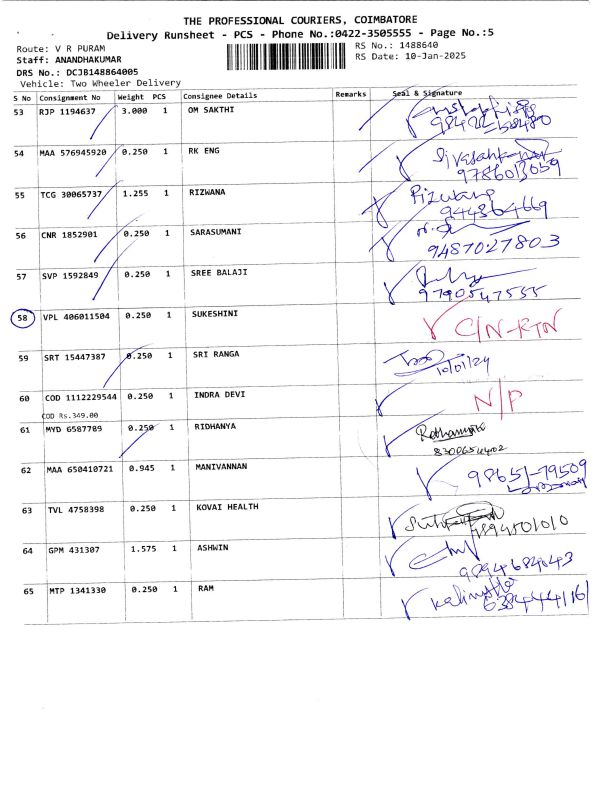 THE PROFESSIONAL COURIERS, COIMBATORE
Delivery Runsheet - PCS - Phone No.:0422-3505555 - Page No.:5
Route: V R PURAM
RS No.: 1488640
Staff: ANANDHAKUMAR
RS Date: 10-Jan-2025
DRS No.: DCJB148864005
Vehicle: Two Wheeler Delivery
S No Consignment No Weight PCS Consignee Details Remarks Seal & Signature
53 RJP 1194637 3.000 1 OM SAKTHI
54 MAA 576945920 0.250 1 RK ENG
9786013059
55 TCG 30065737 1.255 1 RIZWANA Rizwana
944364669
56 CNR 1852901 0.250 1 SARASUMANI
9487027803
57 SVP 1592849 0.250 1 SREE BALAJI
9790547555
58 VPL 406011504 0.250 1 SUKESHINI C/N-RTN
59 SRT 15447387 0.250 1 SRI RANGA
10/01/24
60 COD 1112229544 0.250 1 INDRA DEVI N/P
COD Rs.349.00
61 MYD 6587789 0.250 1 RIDHANYA
8300654402
62 MAA 650410721 0.945 1 MANIVANNAN 98651-79509
63 TVL 4758398 0.250 1 KOVAI HEALTH
64 GPM 431307 1.575 1 ASHWIN
9894684043
65 MTP 1341330 0.250 1 RAM